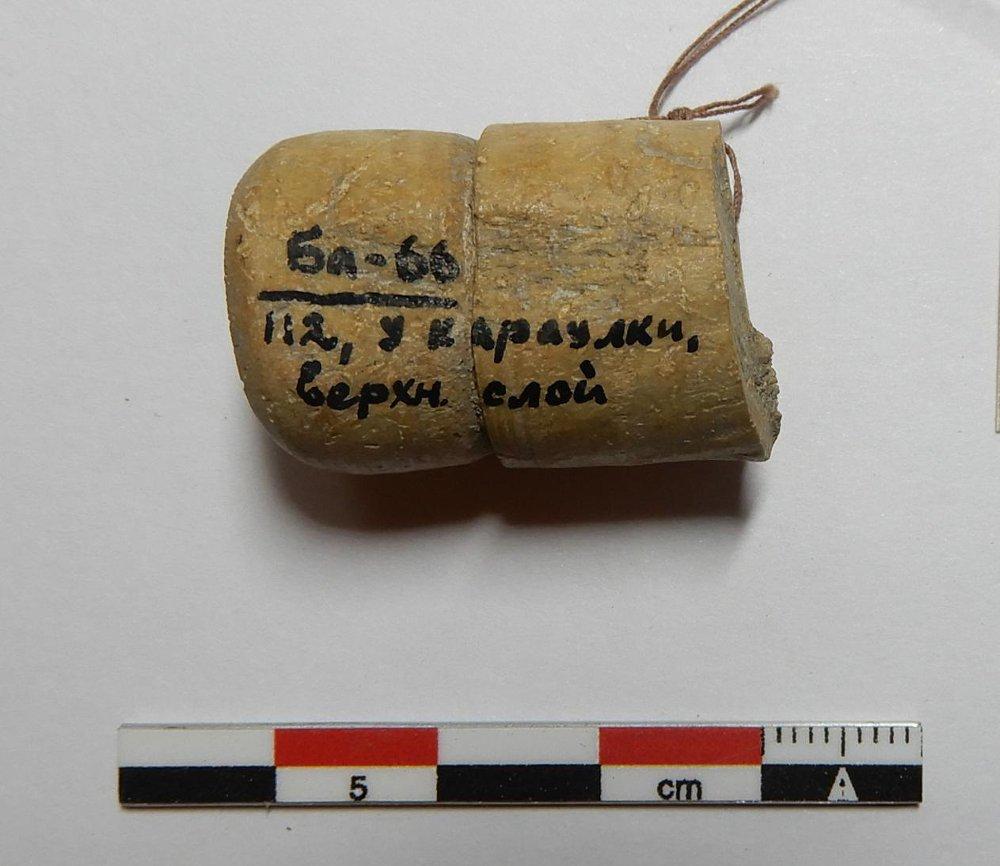 Бл-66
112, у караулки,
верхн. слой
5 cm